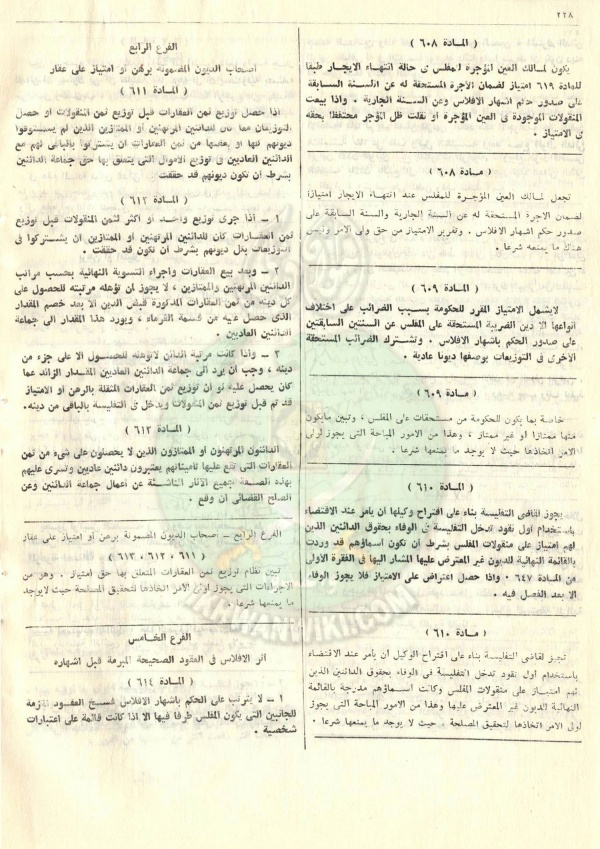 ٢٢٨
( المادة ٦٠٨ )
يكون لمالك العين المؤجرة للمفلس فى حالة انتهاء الايجار طبقا
للمادة ٦١٩ امتياز لضمان الأجرة المستحقة له عن السنة السابقة
على صدور حكم اشهار الافلاس وعن السنة الجارية . واذا بيعت
المنقولات الموجودة فى العين المؤجرة أو نقلت ظل المؤجر محتفظا بحقه
فى الامتياز .
( مادة ٦٠٨ )
تجعل لمالك العين المؤجرة للمفلس عند انتهاء الايجار امتيازا
لضمان الاجرة المستحقة له عن السنة الجارية والسنة السابقة على
صدور حكم اشهار الافلاس . وتقرير الامتياز من حق ولى الامر وليس
هناك ما يمنعه شرعا .
( المادة ٦٠٩ )
لايشمل الامتياز المقرر للحكومة بسبب الضرائب على اختلاف
أنواعها الا دين الضريبة المستحقة على المفلس عن السنتين السابقتين
على صدور الحكم باشهار الافلاس . وتشترك الضرائب المستحقة
الأخرى فى التوزيعات بوصفها ديونا عادية .
( مادة ٦٠٩ )
خاصة بما يكون للحكومة من مستحقات على المفلس ، وتبين مايكون
منها ممتازا أو غير ممتاز ، وهذا من الامور المباحة التى يجوز لولى
الامر اتخاذها حيث لا يوجد ما يمنعها شرعا .
( المادة ٦١٠ )
يجوز لقاضى التفليسة بناء على اقتراح وكيلها أن يأمر عند الاقتضاء
باستخدام أول نقود تدخل التفليسة فى الوفاء بحقوق الدائنين الذين
لهم امتياز على منقولات المفلس بشرط أن تكون أسماؤهم قد وردت
بالقائمة النهائية للديون غير المعترض عليها المشار اليها فى الفقرة الأولى
من المادة ٦٤٧ . واذا حصل اعتراض على الامتياز فلا يجوز الوفاء
الا بعد الفصل فيه .
( مادة ٦١٠ )
تجيز لقاضى التفليسة بناء على اقتراح الوكيل أن يأمر عند الاقتضاء
باستخدام أول نقود تدخل التفليسة فى الوفاء بحقوق الدائنين الذين
لهم امتياز على منقولات المفلس وكانت أسماؤهم مدرجة بالقائمة
النهائية للديون غير المعترض عليها وهذا من الامور المباحة التى يجوز
لولى الامر اتخاذها لتحقيق المصلحة ، حيث لا يوجد ما يمنعها شرعا .
الفرع الرابع
أصحاب الديون المضمونة برهن أو امتياز على عقار
( المادة ٦١١ )
اذا حصل توزيع ثمن العقارات قبل توزيع ثمن المنقولات أو حصل
التوزيعان معا كان للدائنين المرتهنين أو الممتازين الذين لم يستوفوا
ديونهم كلها أو بعضها من ثمن العقارات أن يشتركوا بالباقى لهم مع
الدائنين العاديين فى توزيع الأموال التى يتعلق بها حق جماعة الدائنين
بشرط أن تكون ديونهم قد حققت .
( المادة ٦١٢ )
١ – اذا جرى توزيع واحد أو أكثر لثمن المنقولات قبل توزيع
ثمن العقارات كان للدائنين المرتهنين أو الممتازين أن يشتركوا فى
التوزيعات بكل ديونهم بشرط أن تكون قد حققت .
٢ – وبعد بيع العقارات واجراء التسوية النهائية بحسب مراتب
الدائنين المرتهنين والممتازين ، لا يجوز لمن تؤهله مرتبته للحصول على
كل دينه من ثمن العقارات المذكورة قبض الدين الا بعد خصم المقدار
الذى حصل عليه من قسمة الغرماء ، ويورد هذا المقدار الى جماعة
الدائنين العاديين .
٣ – واذا كانت مرتبة الدائن لاتؤهله للحصول الا على جزء من
دينه ، وجب أن يرد الى جماعة الدائنين العاديين المقدار الزائد عما
كان يحصل عليه لو أن توزيع ثمن العقارات المثقلة بالرهن أو الامتياز
قد تم قبل توزيع ثمن المنقولات ويدخل فى التفليسة بالباقى من دينه .
( المادة ٦١٣ )
الدائنون المرتهنون أو الممتازون الذين لا يحصلون على شىء من ثمن
العقارات التى تقع عليها تأميناتهم يعتبرون دائنين عاديين وتسرى عليهم
بهذه الصفة جميع الآثار الناشئة عن أعمال جماعة الدائنين وعن
الصلح القضائى ان وقع .
الفرع الرابع – أصحاب الديون المضمونة برهن أو امتياز على عقار
( ٦١١ ، ٦١٢ ، ٦١٣ )
تبين نظام توزيع ثمن العقارات المتعلق بها حق امتياز . وهو من
الاجراءات التى يجوز لولى الامر اتخاذها لتحقيق المصلحة حيث لايوجد
ما يمنعها شرعا .
الفرع الخامس
أثر الافلاس فى العقود الصحيحة المبرمة قبل اشهاره
( المادة ٦١٤ )
١ – لا يترتب على الحكم باشهار الافلاس فسخ العقود الملزمة
للجانبين التى يكون المفلس طرفا فيها الا اذا كانت قائمة على اعتبارات
شخصية .
IKHWANWIKI.COM